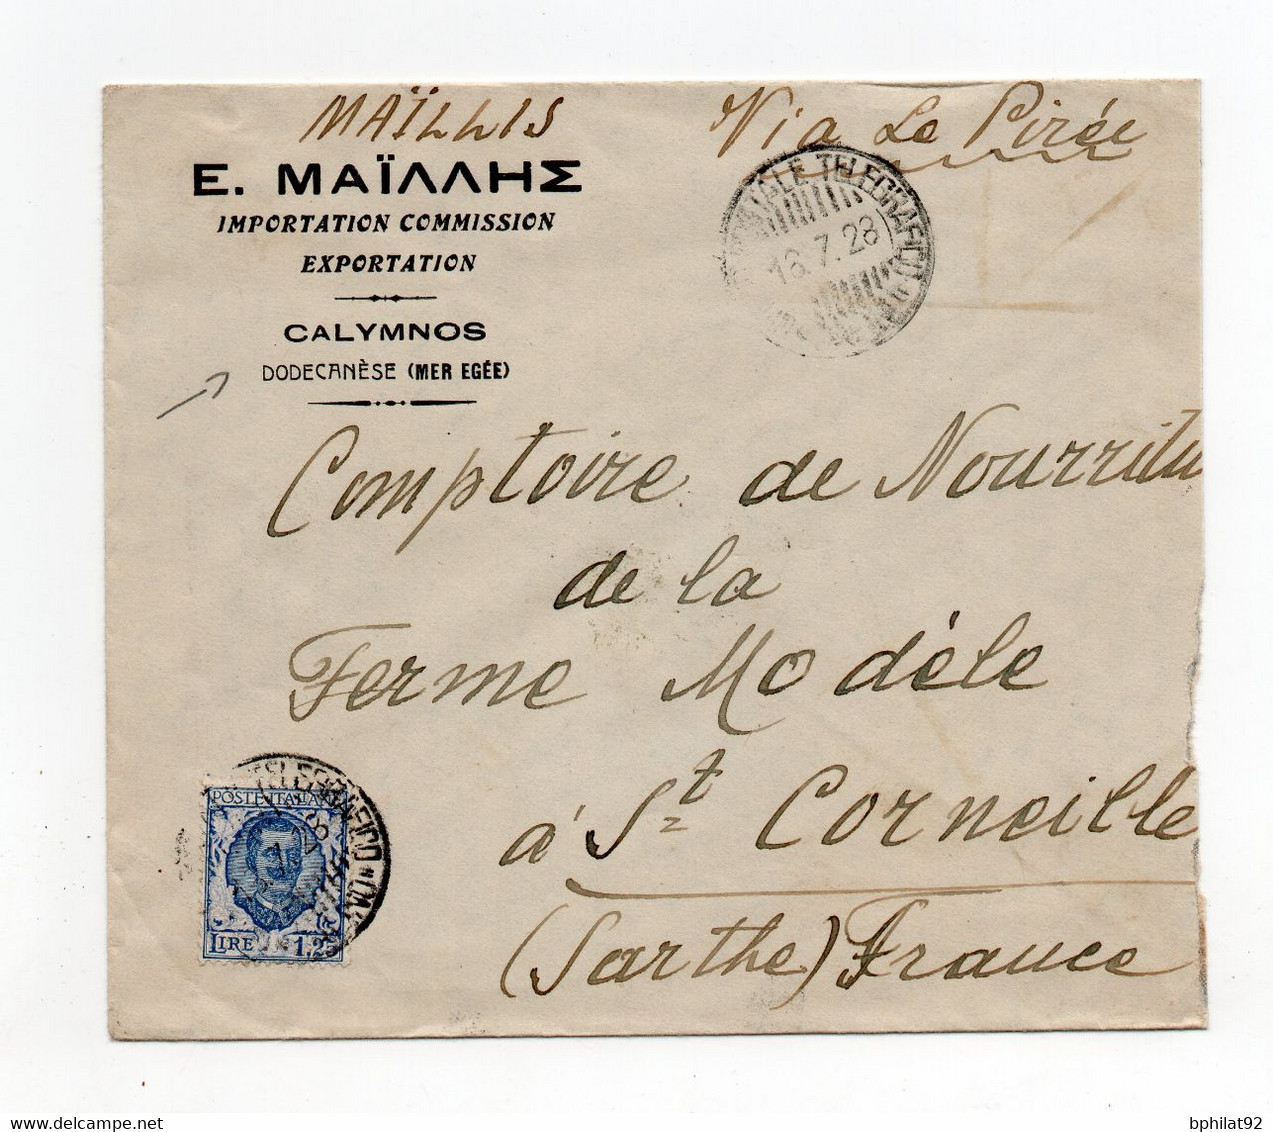 MAÏLLIS
Via Le Pirée
Ε. ΜΑΪΛΛΗΣ
IMPORTATION COMMISSION
EXPORTATION
CALYMNOS
DODECANÈSE (MER EGÉE)
TELEGRAFICO
16.7.28
Comptoire de Nourritu
de la
Ferme Modéle
à St Corneille
(Sarthe) France
TELEGRAFICO
POSTE ITALIANE
LIRE 1,25
bphilat92